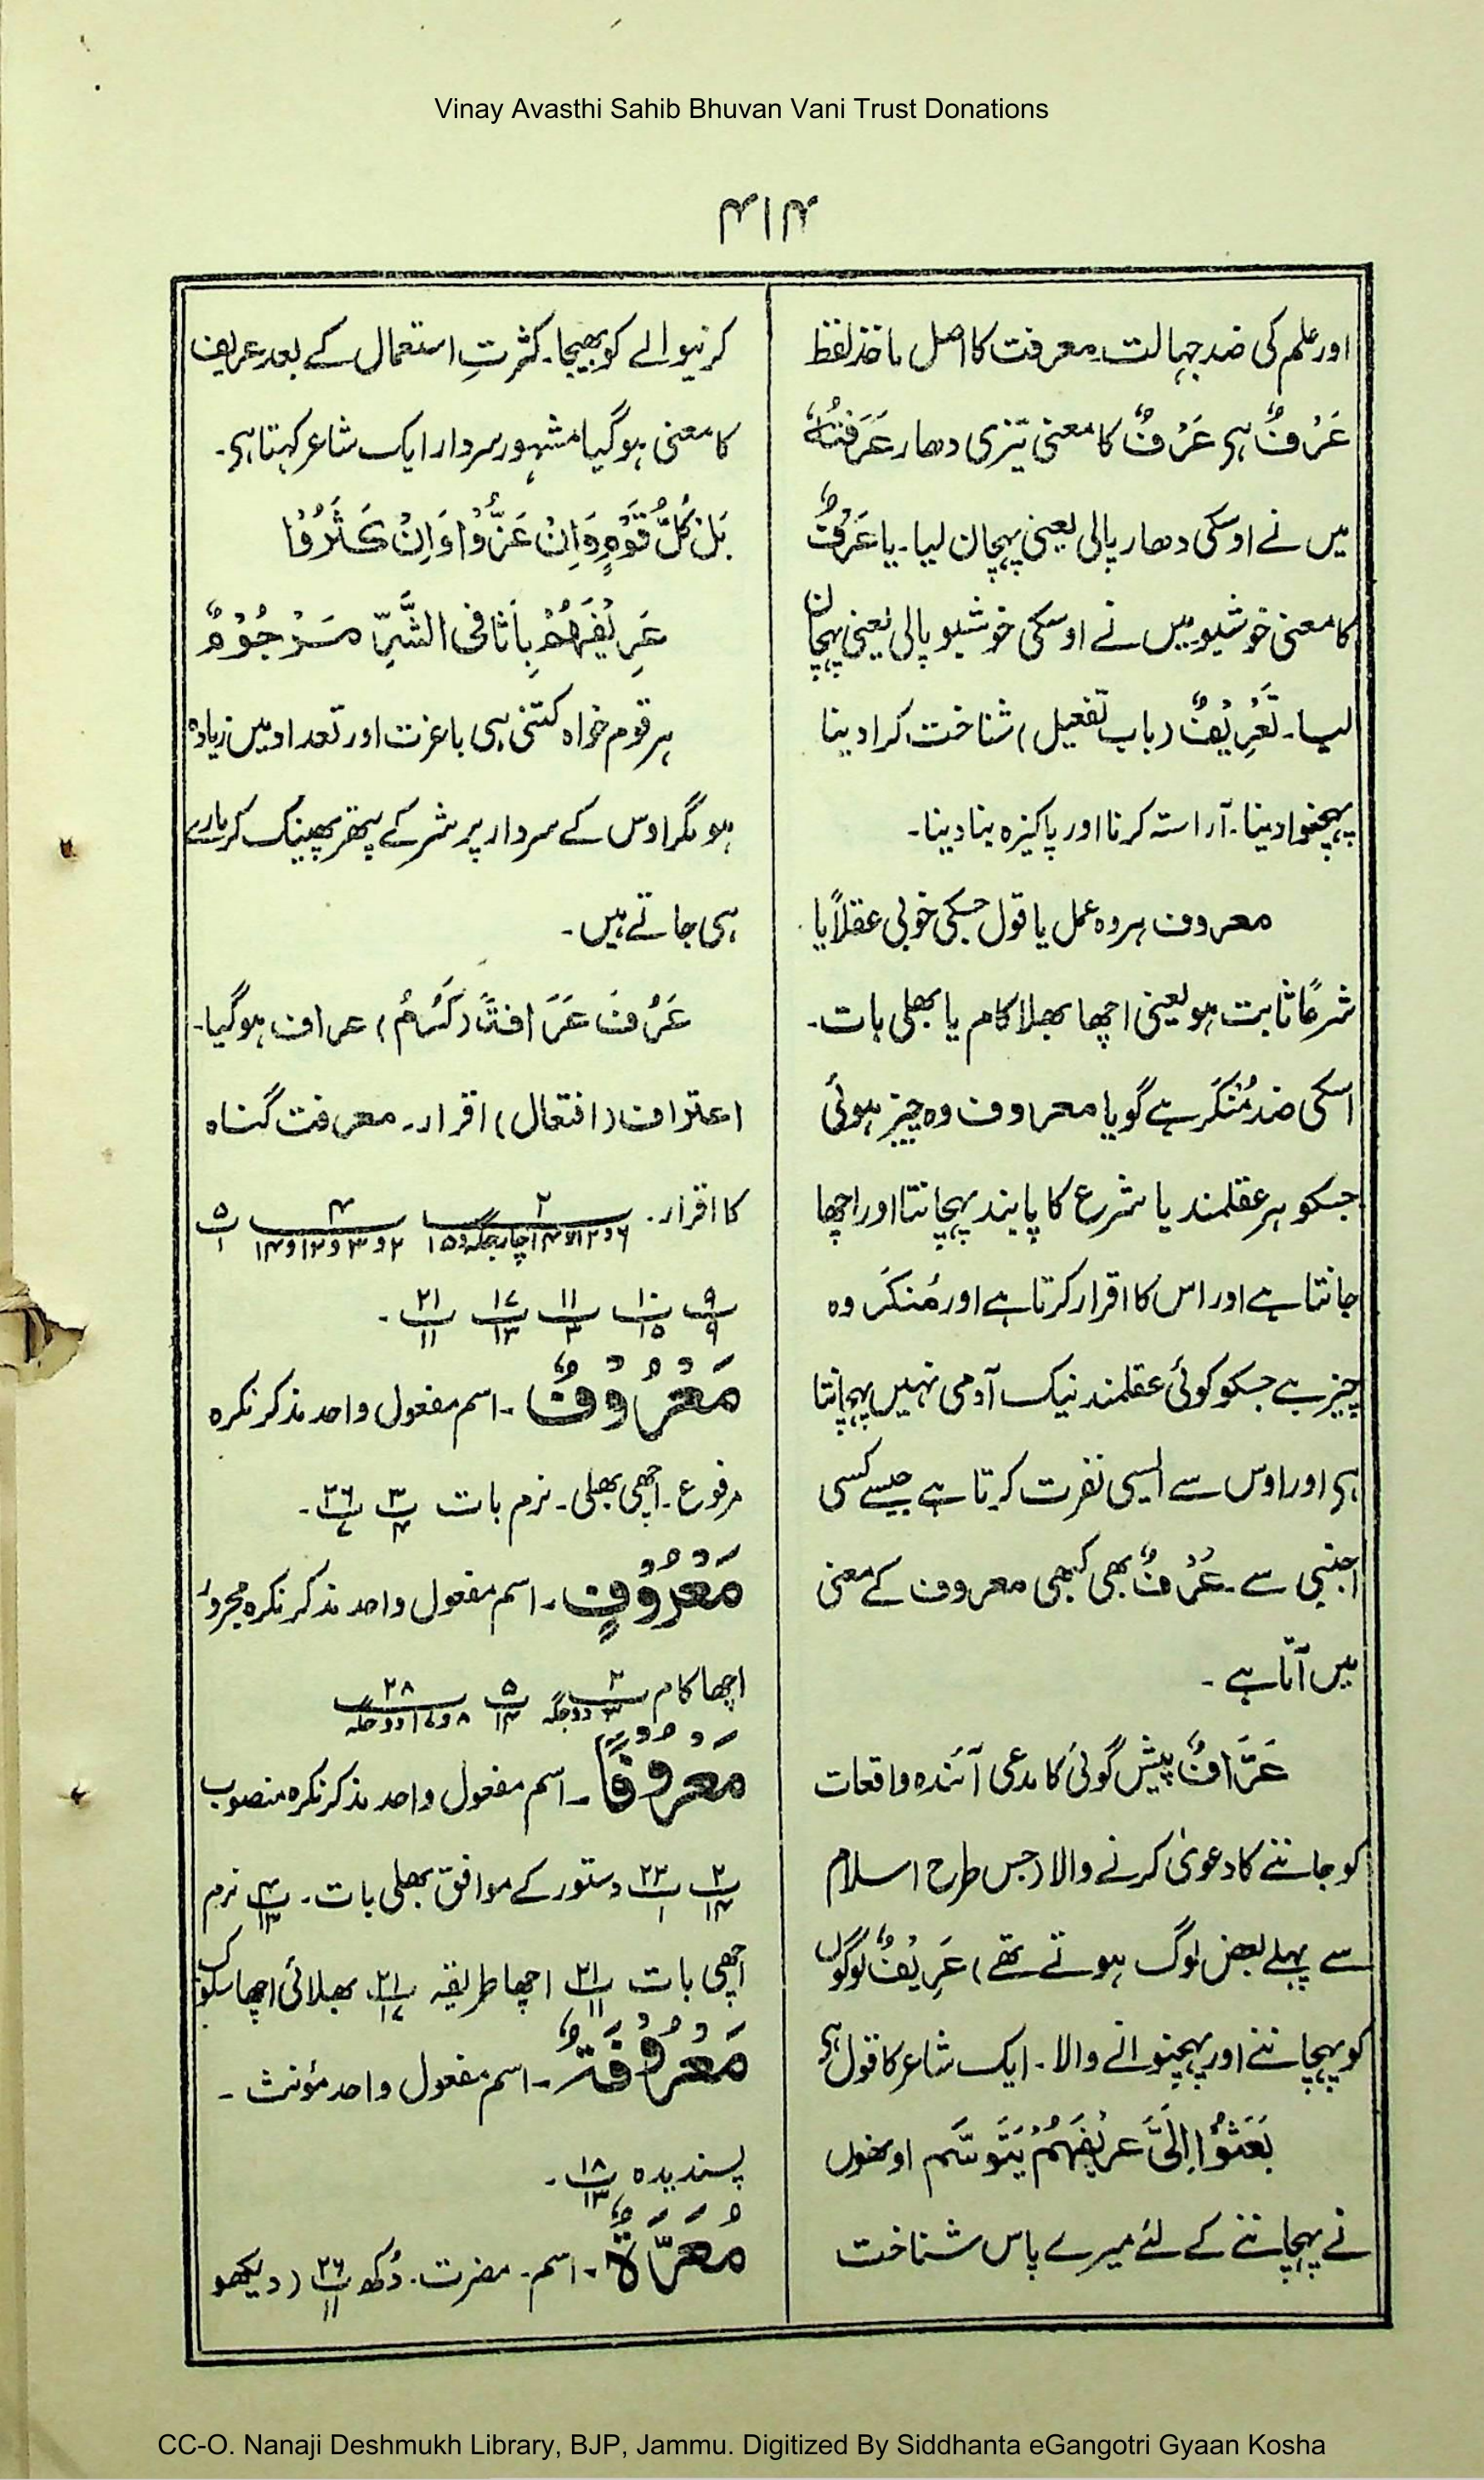 Vinay Avasthi Sahib Bhuvan Vani Trust Donations
۴۱۴
اور علم کی ضد جہالت۔ معرفت کا اصل ماخذ لفظ
عَرْفٌ ہی عَرْفٌ کا معنی تیزی دھار عَرَفْتُہٗ
میں نے اوسکی دھار پالی یعنی پہچان لیا۔ یا عَرْفٌ
کا معنی خوشبو میں نے اوسکی خوشبو پالی یعنی پہچان
لیا۔ تَعْرِیْفٌ (باب تفعیل) شناخت کرا دینا
پہچنوا دینا۔ آراستہ کرنا اور پاکیزہ بنا دینا۔
معروف ہر وہ عمل یا قول جسکی خوبی عقلاً یا
شرعًا ثابت ہو یعنی اچھا بھلا کام یا بھلی بات۔
اسکی ضد مُنْکَر ہے گویا معروف وہ چیز ہوئی
جسکو ہر عقلمند یا شرع کا پابند پہچانتا اور اچھا
جانتا ہے اور اس کا اقرار کرتا ہے اور مُنکَر وہ
چیز ہے جسکو کوئی عقلمند نیک آدمی نہیں پہچانتا
ہی اور اوس سے ایسی نفرت کرتا ہے جیسے کسی
اجنبی سے۔ عُرْفٌ بھی کبھی معروف کے معنی
میں آتا ہے۔
عَرَّافٌ پیش گوئی کا مدعی آئندہ واقعات
کو جاننے کا دعویٰ کرنے والا (جس طرح اسلام
سے پہلے بعض لوگ ہوتے تھے) عَرِیْفٌ لوگوں
کو پہچاننے اور پہچنوانے والا۔ ایک شاعر کا قول ہی
بَعَثُوْا اِلَیَّ عَرِیْفَہُمْ یَتَوَسَّم اونھوں
نے پہچاننے کے لئے میرے پاس شناخت
کرنیوالے کو بھیجا۔ کثرتِ استعمال کے بعد عریف
کا معنی ہوگیا مشہور سردار ایک شاعر کہتا ہی۔
بَلْ کُلُّ قَوْمٍ وَاِنْ عَزُّوْا وَاِنْ کَثُرُوْا
عَرِیْفُہُمْ بِاَثَافِی الشَّرِّ مَرْجُوْمٌ
ہر قوم خواہ کتنی ہی باعزت اور تعداد میں زیادہ
ہو مگر اوس کے سردار پر شر کے پتھر پھینک کر مارے
ہی جاتے ہیں۔
عَرُفَ عَرَافَۃً (کَرُمَ) عراف ہوگیا۔
اعتراف (افتعال) اقرار۔ معرفت گناہ
کا اقرار۔ ۲ ۴ ۵
۲ و ۳ و ۱۲ و ۱۴ ۱
۹ ۱۰ ۱۱ ۱۷ ۲۱
۹ ۱۵ ۳ ۱۳ ۱۱
مَعْرُوْفٌ۔ اسم مفعول واحد مذکر نکرہ
مرفوع۔ اچھی بھلی۔ نرم بات ۳/۴ ۲۶/۷۔
مَعْرُوْفٍ۔ اسم مفعول واحد مذکر نکرہ مجرور
اچھا کام ۲/۳ دو جگہ ۵/۱۴ ۲۸/۸ و ۱۷ دو جگہ
مَعْرُوْفًا۔ اسم مفعول واحد مذکر نکرہ منصوب
۲/۱۴ ۲۲/۱ دستور کے موافق بھلی بات۔ ۴/۱۲ نرم
اچھی بات ۲۱/۱۱ اچھا طریقہ ۲۱/۱۷ بھلائی اچھا سلوک
مَعْرُوْفَۃٌ۔ اسم مفعول واحد مؤنث۔
پسندیدہ ۱۸/۱۳۔
مَعَرَّۃٌ۔ اسم۔ مضرت۔ دُکھ ۲۶/۱۱ (دیکھو
CC-O. Nanaji Deshmukh Library, BJP, Jammu. Digitized By Siddhanta eGangotri Gyaan Kosha